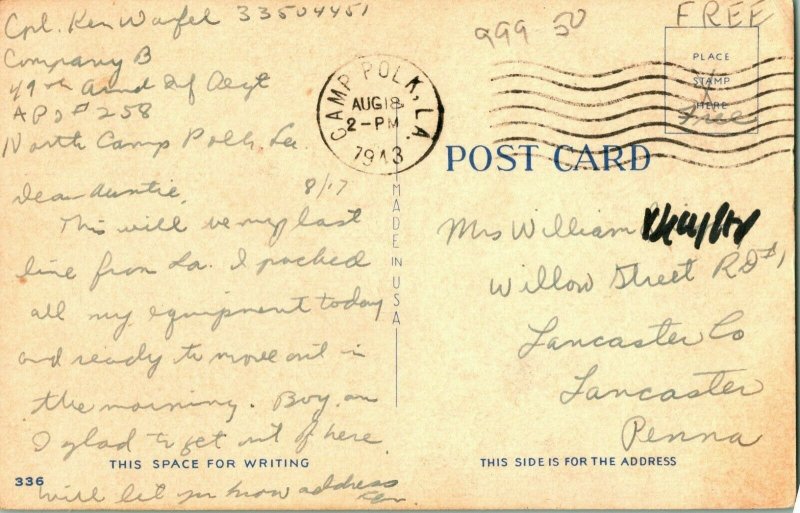 Cpl. Ken Warfel 33504451
Company B
49th Armd Inf Regt
APO # 258
North Camp Polk, La
8/17
Dear Auntie,
This will be my last
line from La. I packed
all my equipment today
and ready to move out in
the morning. Boy, am
I glad to get out of here
will let you know address
Ken
THIS SPACE FOR WRITING
336
MADE IN USA
CAMP POLK, LA.
AUG 18
2-PM
1943
999 50
FREE
PLACE
STAMP
HERE
Free
POST CARD
Mrs William
Willow Street RD #1
Lancaster Co
Lancaster
Penna
THIS SIDE IS FOR THE ADDRESS